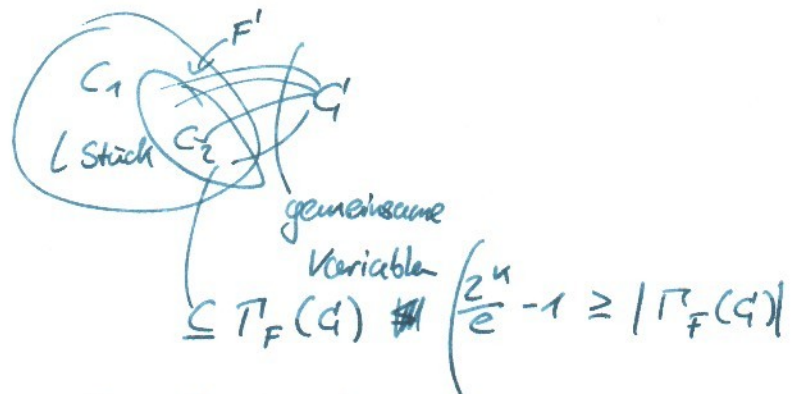 F'
C₁
C₂
C'
L Stück
gemeinsame
Variablen
⊆ Γ_F(C') 2^k/e - 1 ≥ |Γ_F(C')|